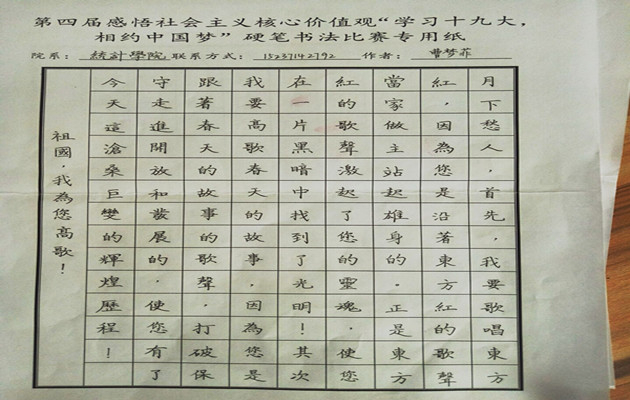 第四届感悟社会主义核心价值观“学习十九大，
相约中国梦”硬笔书法比赛专用纸
院系：統計學院 联系方式：15237142792 作者：曹梦菲
月下愁人，首先，我要歌唱東方
紅，因為您是沿著東方紅的歌聲
當家做主站起雄身的。正是東方
紅的歌聲激起了您的靈魂，使您
在一片黑暗中找到了光明！其次
我要高歌春天的故事，因為您是
跟著春天的故事的歌聲，打破保
守走進開放和發展的，使您有了
今天這滄桑巨變的輝煌歷程！
祖國，我為您高歌！